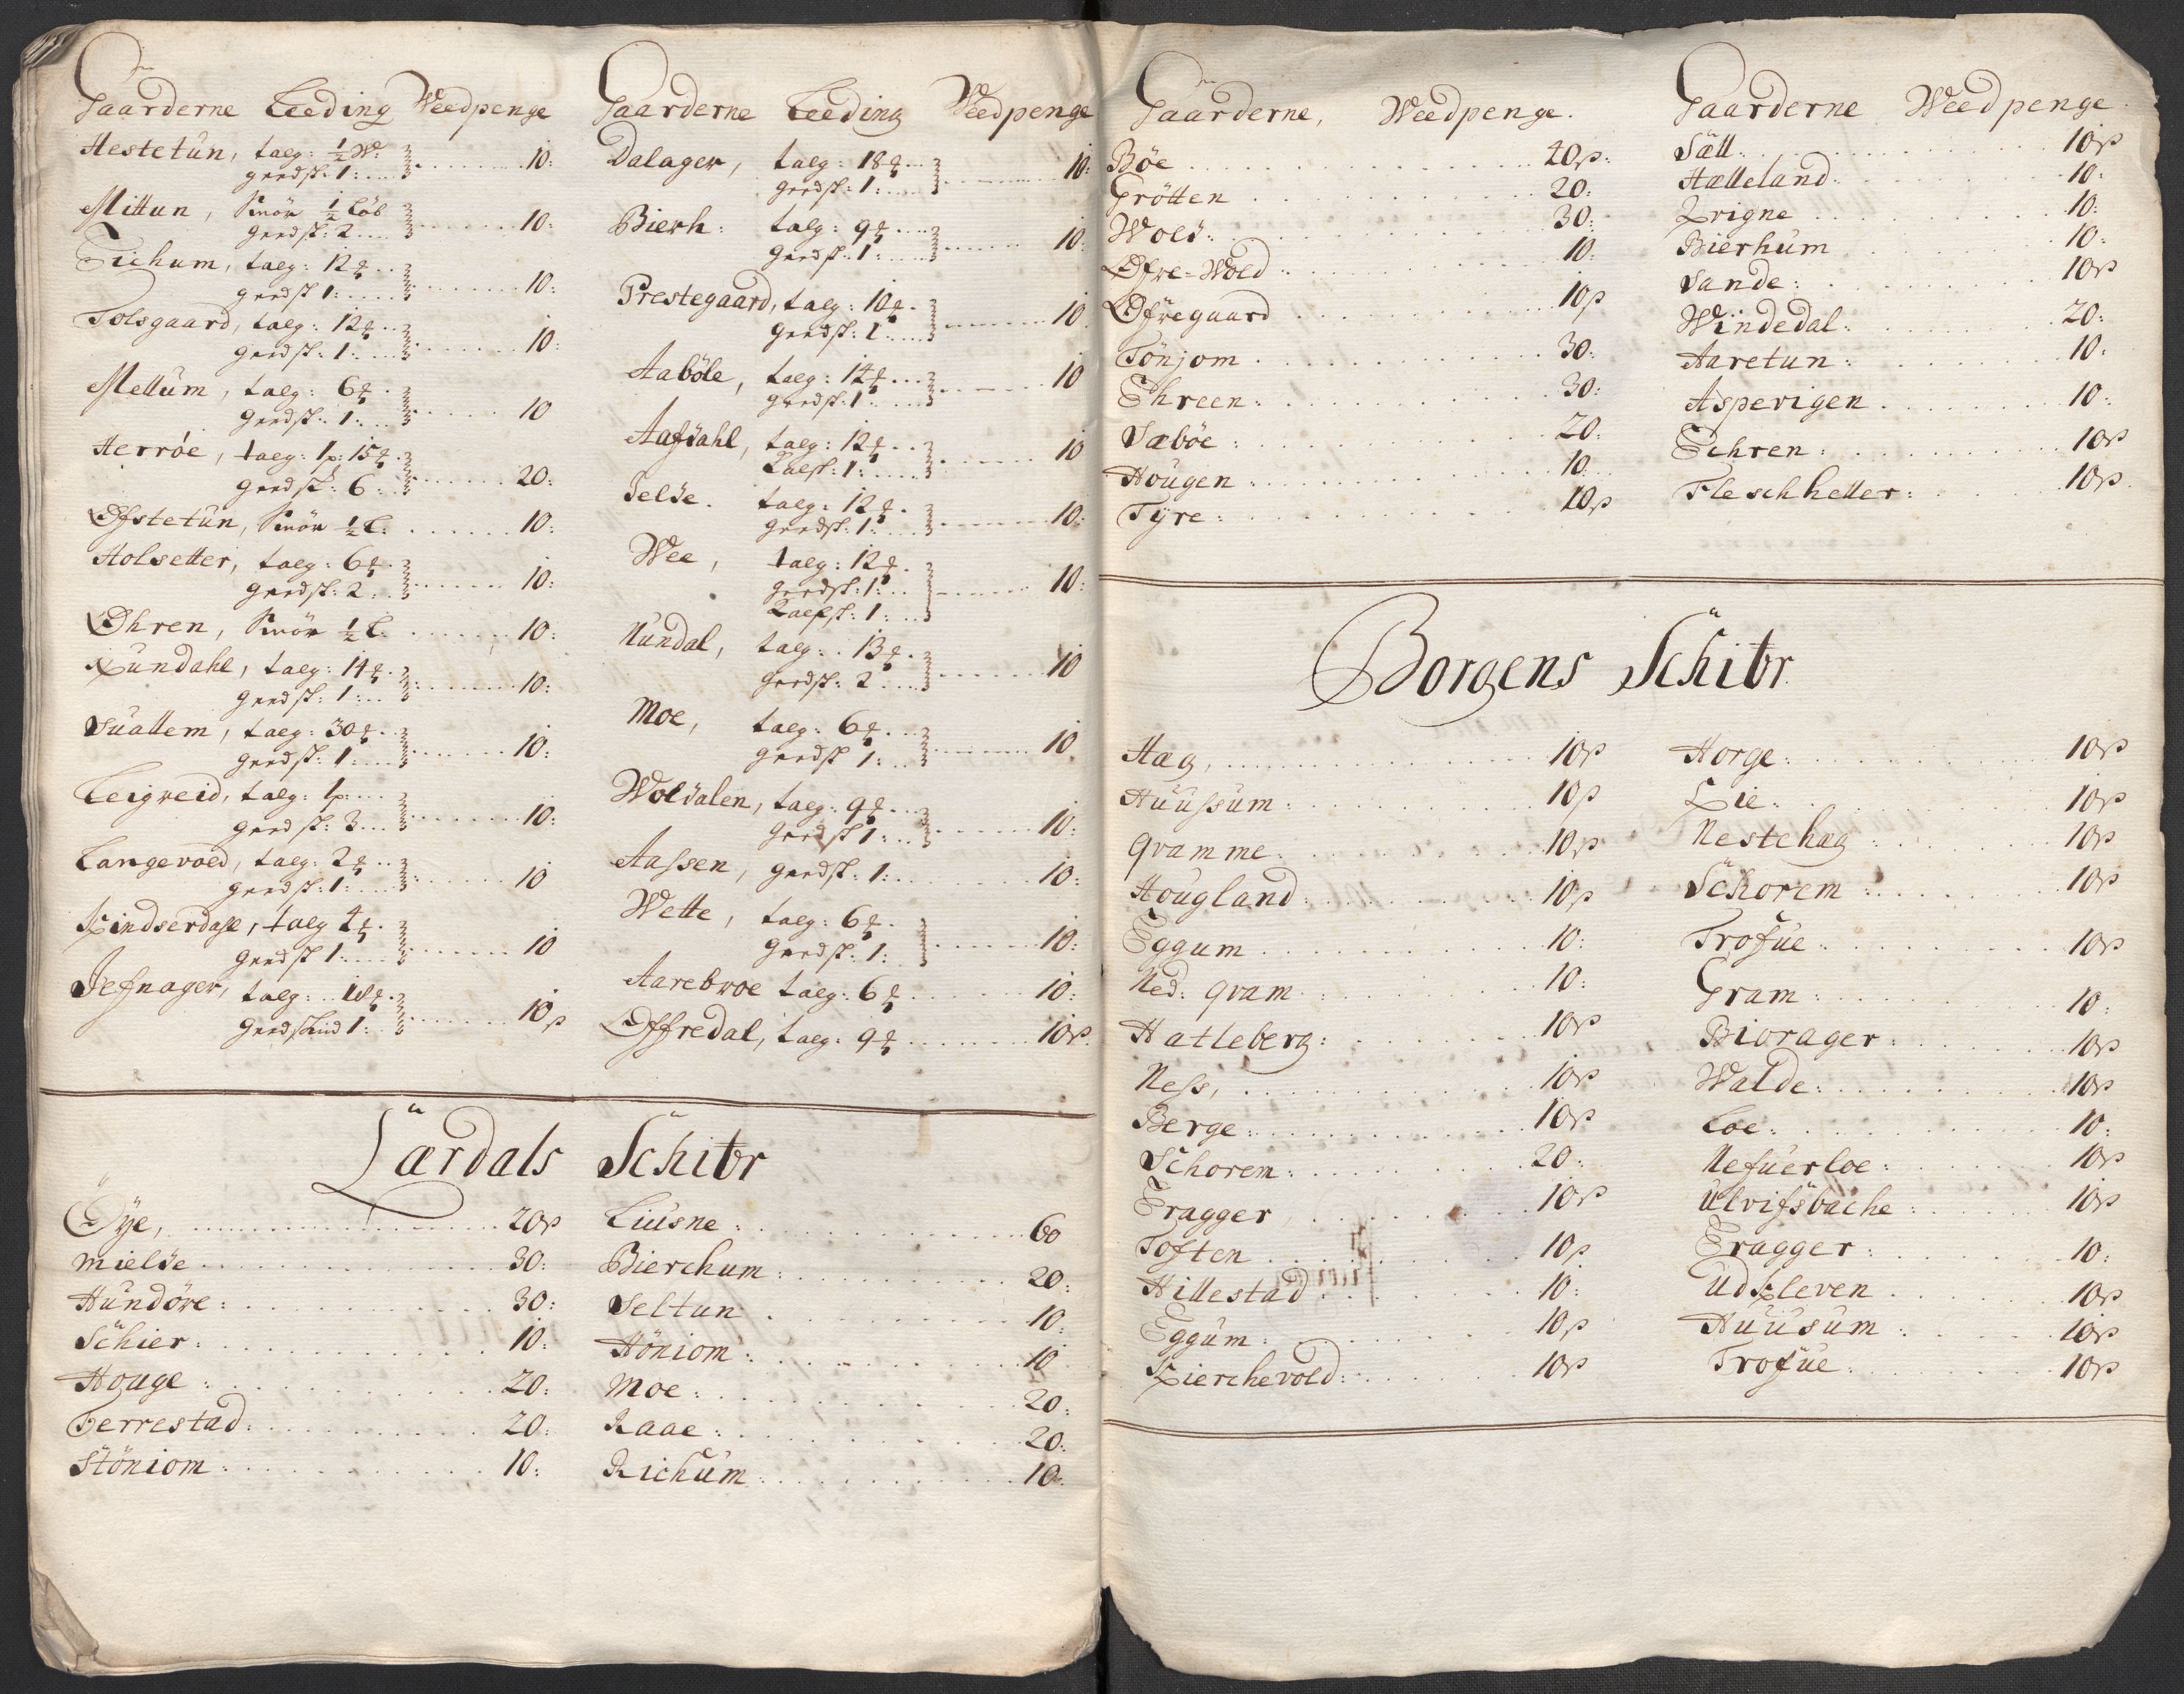 Gaarderne Leeding Weedpenge
Hestetún, talg: ½ W:
geedsk: 1: 10:
Mittun, Smör ½ Löb
geedsk: 2 10:
Eichum, talg: 12 ℔
geedsk 1: 10:
Tolsgaard, talg: 12 ℔
geedsk: 1: 10:
Mellúm, talg: 6 ℔
geedsk: 1: 10
Herröe, talg: 1 p: 15 ℔
geedsk: 6 20:
Øfstetún, Smör ½ L: 10:
Holsetter, talg: 6 ℔
geedsk: 2 10:
Øhren, Smör ½ L: 10:
Nundahl, talg: 14 ℔
geedsk: 1: 10:
Súallem, talg: 30 ℔
geedsk: 1: 10:
Leigreid, talg: 1 p:
geedsk: 3 10:
Langevold, talg: 2 ℔
geedsk: 1: 10
Kindserdahl, talg 4 ℔
geedsk 1: 10
Jefnager, talg: 18 ℔
geedskind 1: 10 β
Gaarderne Leeding Weedpenge
Dalager, talg: 18 ℔
geedsk: 1: 10:
Bierh: talg: 9 ℔
geedsk: 1: 10:
Prestegaard, talg: 10 ℔
geedsk: 1 10
Aaböle, talg: 14 ℔
geedsk: 1: 10
Aafdahl, talg: 12 ℔
Kalfsk: 1: 10
Jelde. talg: 12 ℔
geedsk: 1: 10:
Wee, talg: 12 ℔
geedsk: 1:
Kalfsk: 1: 10:
Núndal, talg: 13 ℔
geedsk: 2 10
Moe, talg: 6 ℔
geedsk 1: 10
Woldalen, talg: 9 ℔
geedsk 1: 10:
Aassen, geedsk: 1: 10:
Wette, talg: 6 ℔
geedsk: 1: 10:
Aarebroe talg: 6 ℔ 10:
Øffredal, talg: 9 ℔ 10 β
Lærdals Schibr
Øÿe, 20 β
Mielde 30:
Húndöre: 30:
Schier: 10:
Houge: 20:
Ferrestad: 20:
Stöniom: 10:
Liusne: 60
Bierchum: 20:
Seltun 10:
Höniom: 10
Moe: 20:
Raae: 20:
Richúm: 10:
Gaarderne, Weedpenge.
Böe 40 β:
Grötten 20:
Wold: 30:
Øfre-Wold: 10:
Øfregaard 10 β
Tönjom 30:
Ehreen: 30:
Sæböe: 20:
Hougen: 10:
Tÿre: 10 β
Gaarderne Weedpenge
Säll: 10 β
Hælleland: 10:
Krigne 10:
Bierhum 10:
Sande: 10 β
Windedal: 20:
Aaretun: 10:
Asperigen 10:
Eehren: 10 β
Fleschheller: 10 β
Borgens Schibr
Hæg, 10 β
Húússum: 10 β
Qvamme: 10 β
Hougland: 10 β
Eggum 10:
Ned: Qvam 10:
Hatleberg: 10 β
Ness, 10 β
Berge: 10 β
Schorem: 20:
Eragger 10 β
Toften 10 β
Hillestad 10:
Eggúm: 10 β
Kierchevold: 10 β
Horge: 10 β
Lie: 10 β
Nestehæg 10 β
Schorem 10 β
Trofúe 10 β
Gram: 10:
Biorager: 10 β
Walde: 10 β
Loe: 10:
Nefúerloe: 10 β
Ulvifsbache: 10 β
Eragger: 10:
Udkleven 10 β
Húúsúm 10 β
Trofúe: 10 β